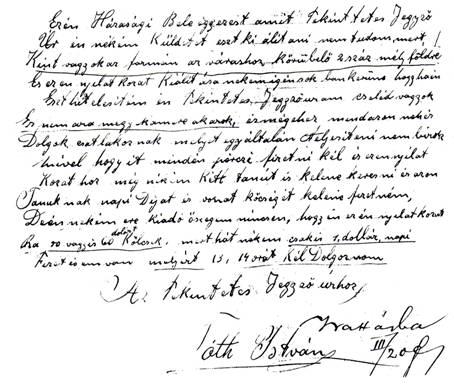 Ezén Házasági Bele eggezest amit Tekintetes Jegyző
Ur én nékém Küldetet eszt ki álitani nem tudom, mert
Ként vagyok az formán az váráshoz körübelő 2 száz mély földre
És ezen nyelat kozat Kiálitása nekem igen sok ban kerüne hogy hain
Eszt hitelesitém én Tekintetes Jegyző uram eseléd vagyok
Es nem ara megy ka akarok, és még ehez mindaron nehés
Dolgok eszt lakoz nak melyet egyáltalán telyesiteni nem birok
mivel hogy it minden pérczé fizetni kél és ezen nyilat
Kozat hoz még nékém Kétt tanuit és kelene keresni és azon
Tanuk nak napi Dijat és vonat kőcségit kelene fizetném,
De én nekém ere kiadó öszegem nincsen, hogy én ez én nyelat kozat
Ra 50 vagy is 60 dolár Kölcsek, mert hát nékem csak is 1, dollár, napi
Fizetisem van melyért 13, 14 orát Kél Dolgoznom
Az Tekintetes Jegyző úrhoz,
Tóth István
III/20